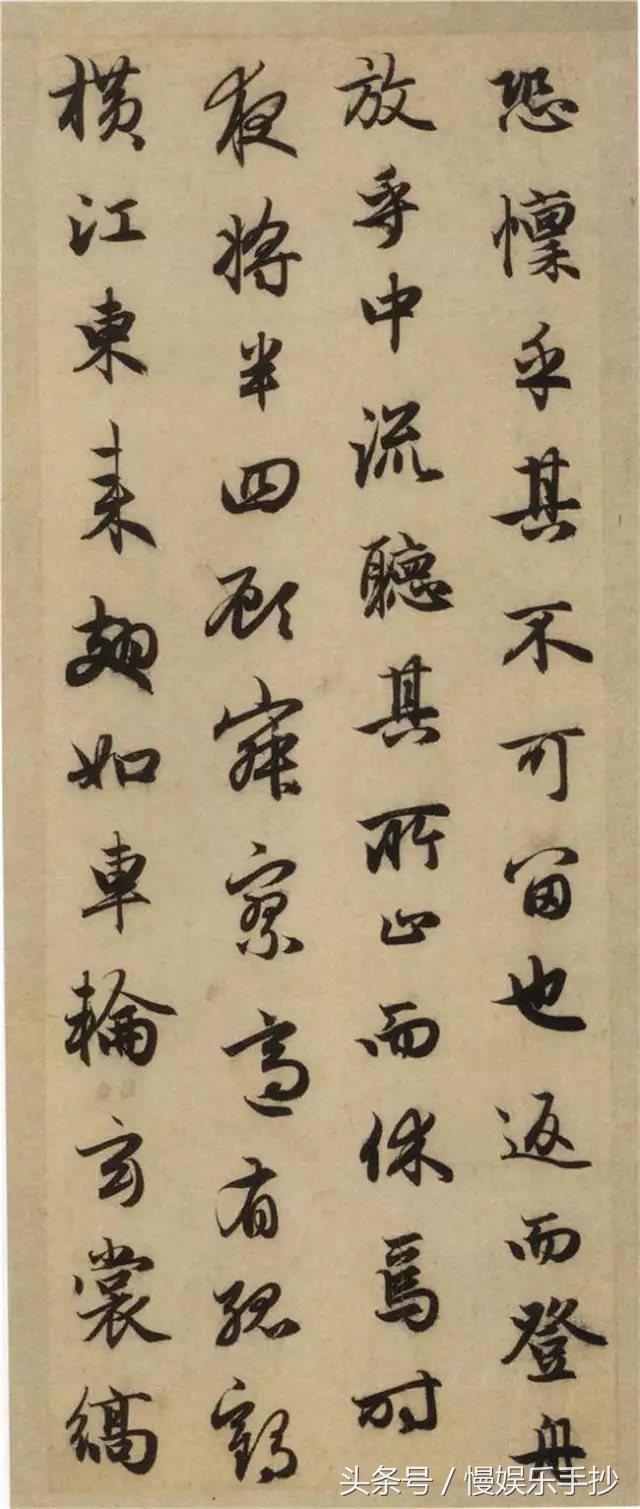 恐懍乎其不可留也返而登舟
放乎中流聽其所止而休焉時
夜將半四顧寂寥適有孤鶴
橫江東来翅如車輪玄裳縞
头条号／慢娱乐手抄